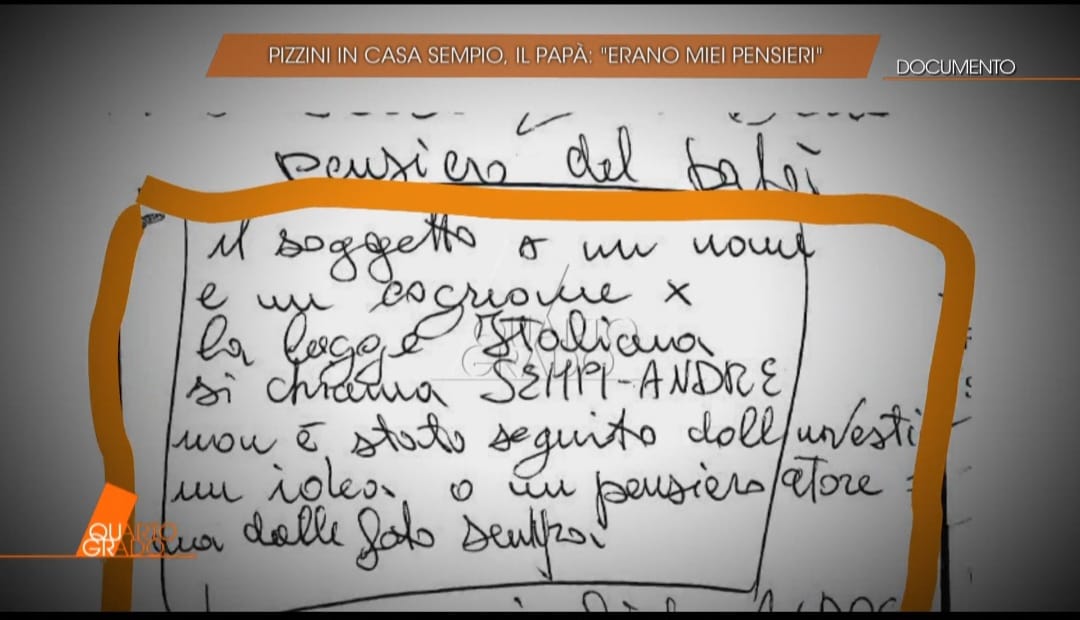 PIZZINI IN CASA SEMPIO, IL PAPÀ: "ERANO MIEI PENSIERI"
DOCUMENTO
pensiero del
il soggetto a un nome
e un cognome x
la legge Italiana
si chiama SEMPI-ANDRE
non è stato seguito dall'investi
un idea o un pensiero atore =
dalle foto sempre.
QUARTO
GRADO